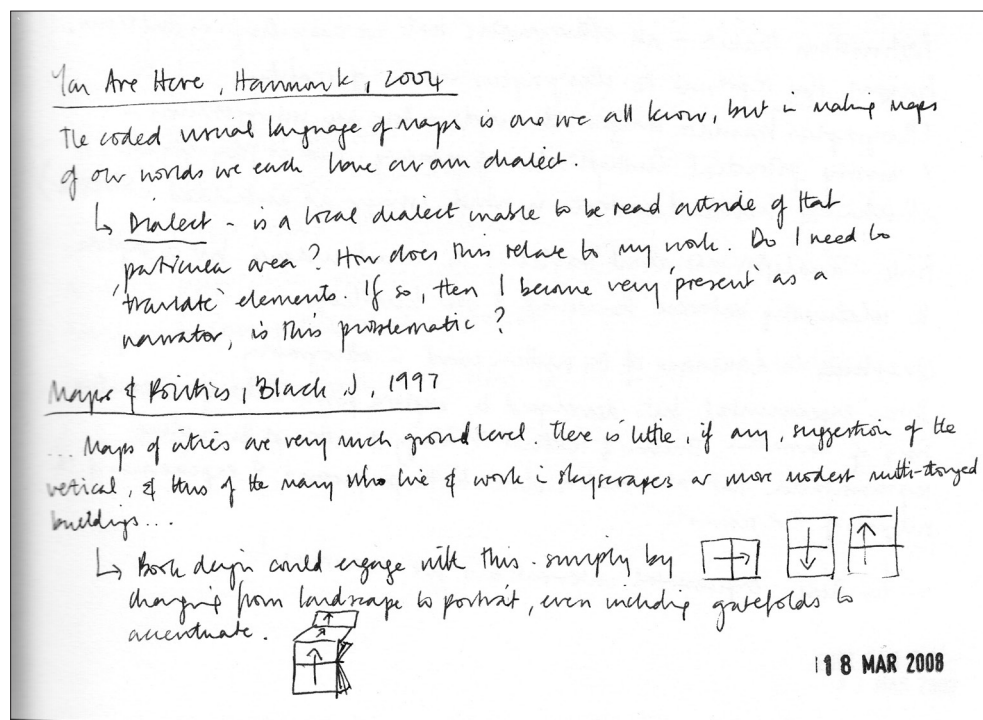 You Are Here, Harmonk, 2004
The coded visual language of maps is one we all know, but in making maps
of our worlds we each have our own dialect.
↳ Dialect - is a local dialect unable to be read outside of that
particular area? How does this relate to my work. Do I need to
'translate' elements. If so, then I become very 'present' as a
narrator, is this problematic?
Maps & Politics, Black J, 1997
... Maps of cities are very much ground level. There is little, if any, suggestion of the
vertical, & thus of the many who live & work in skyscrapers or more modest multi-storeyed
buildings...
↳ Book design could engage with this - simply by
changing from landscape to portrait, even including gatefolds to
accentuate.
18 MAR 2008